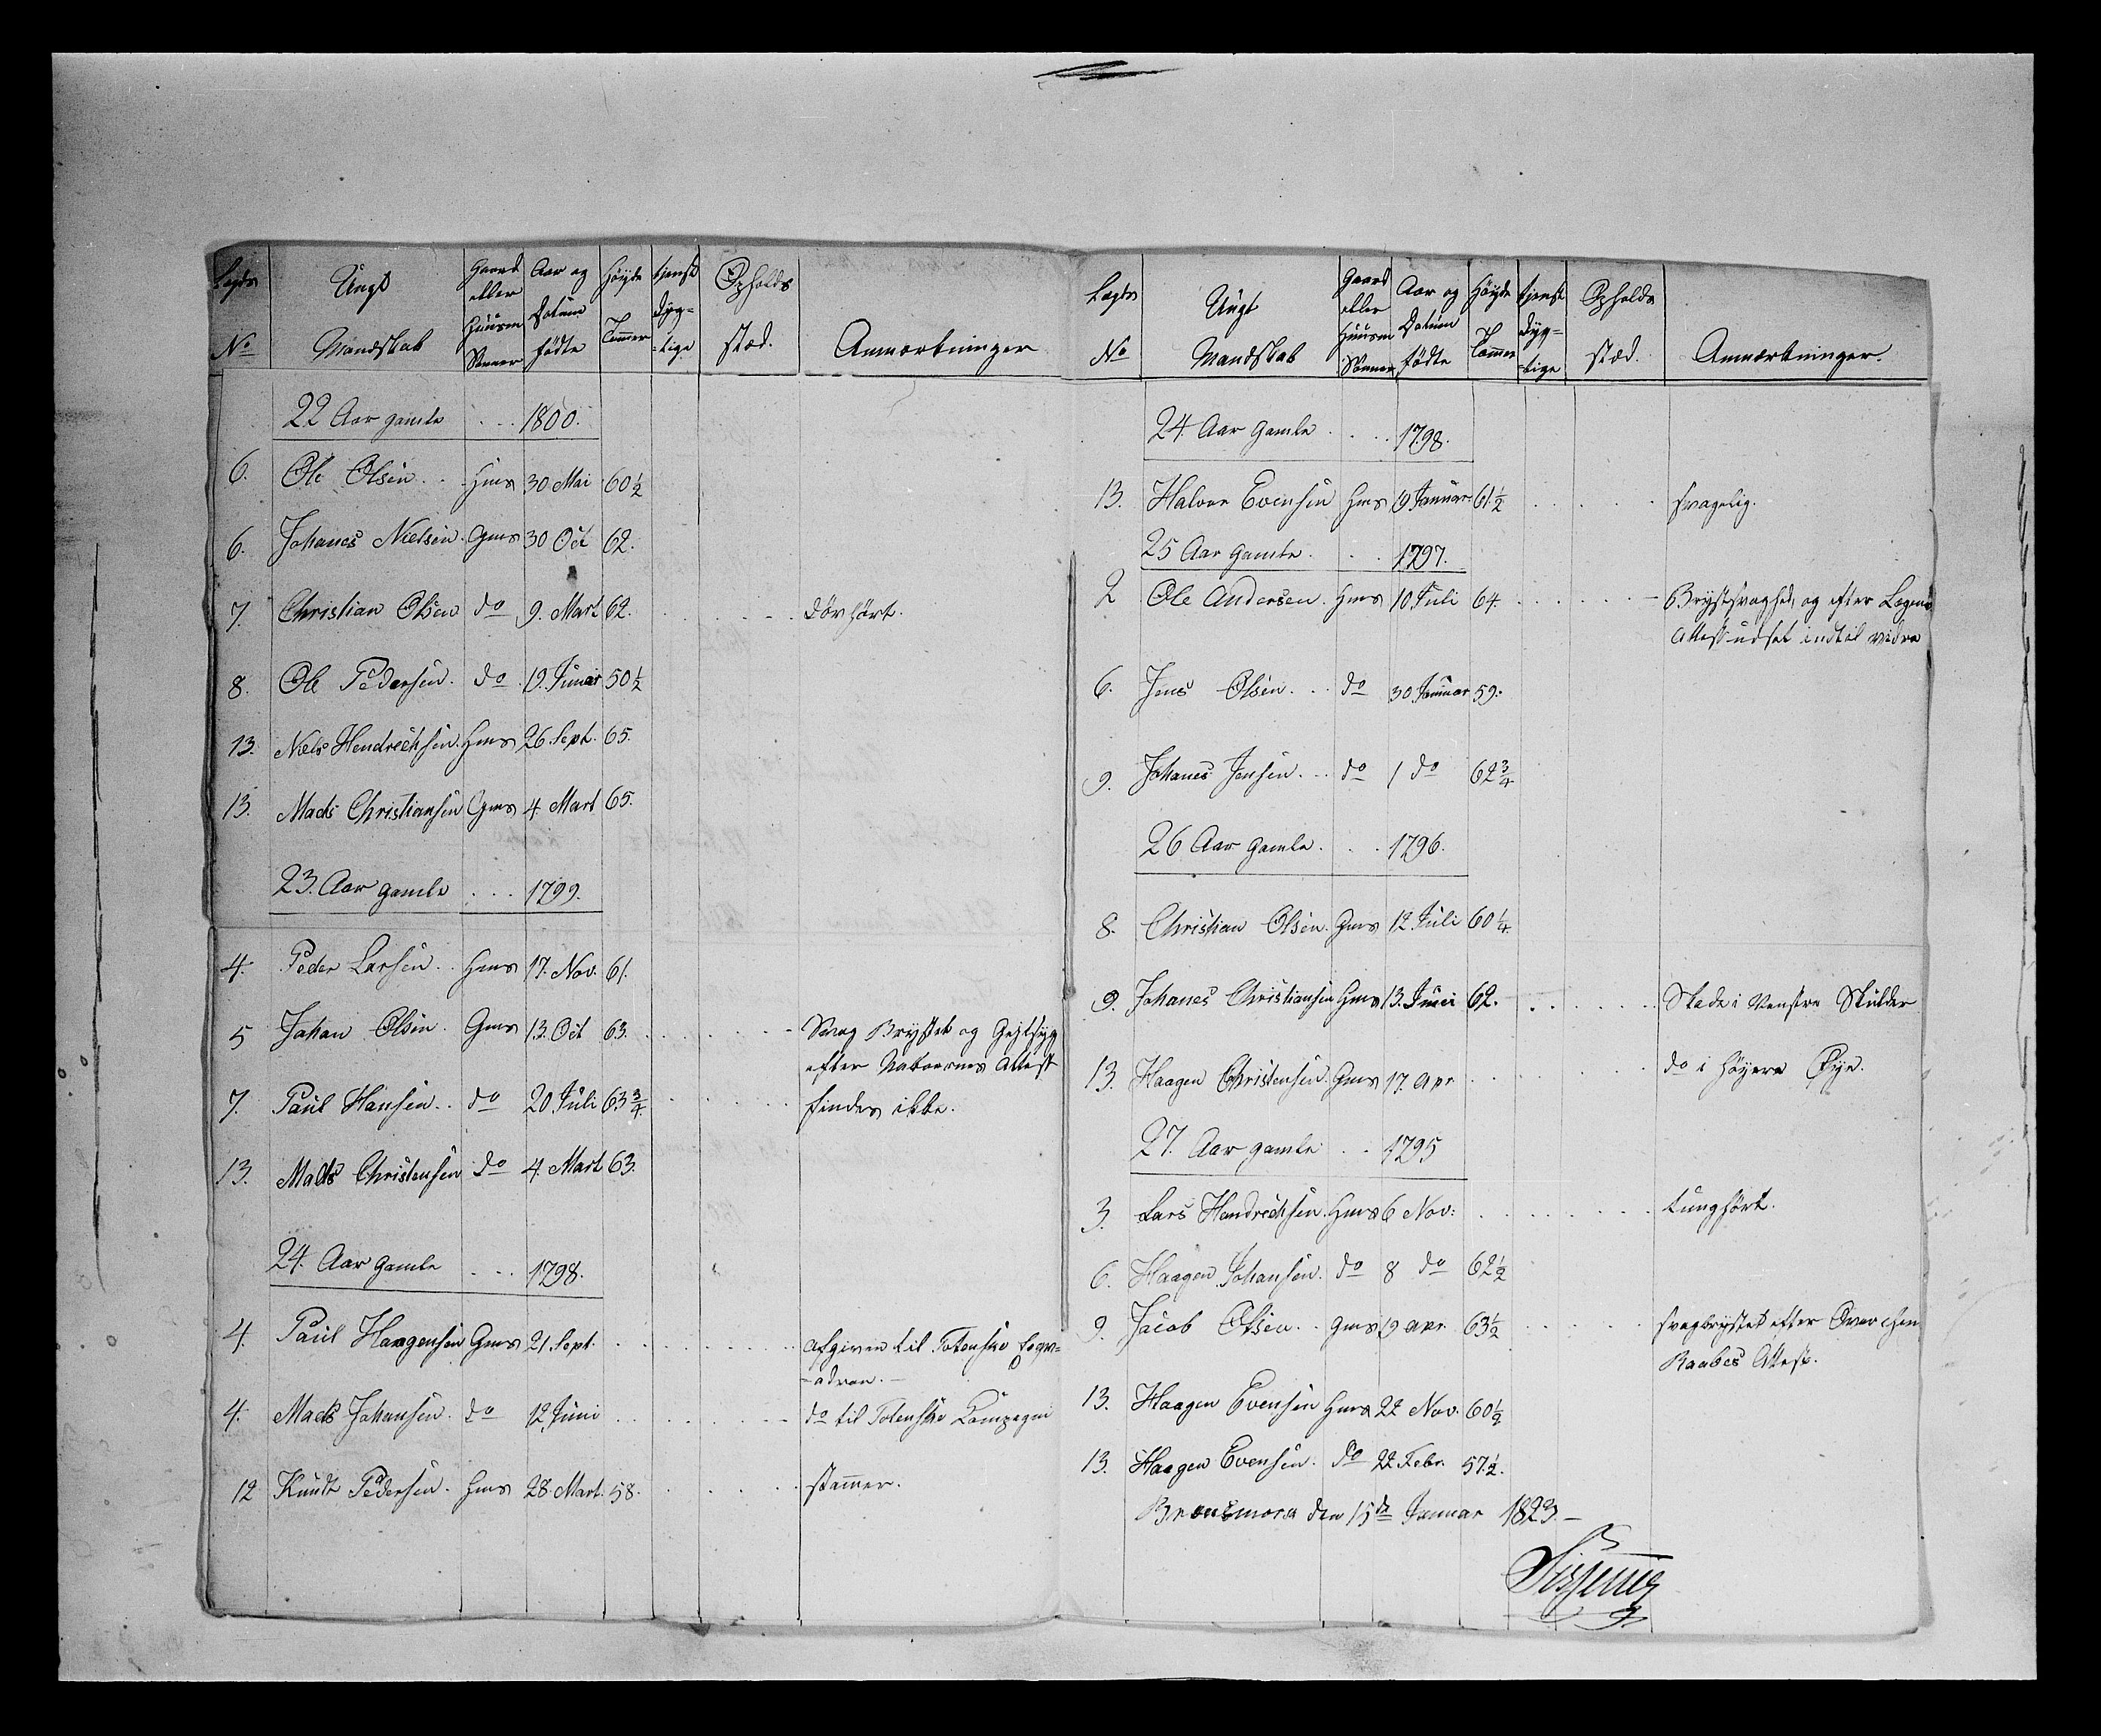 Lægds No | Ungt Mandskab | Gaard eller Huusm Sønner | Aar og Datum fødte | Høyde Tommer | tjenst dyg=tige | Opholds stæd. | Anmærkninger
22 Aar gamle . . . 1800.
6. Ole Olsen . . Hms 30 Mai 60 1/2
6. Johanes Nielsen . Gms 30 Oct 62.
7. Christian Olsen do 9. Mart 62. døvhørt.
8. Ole Pedersen . do . 19. Junii 50 1/2
13. Niels Hendrechsen . Hms 26. Sept. 65.
13. Mads Christiansen Gms 4. Mart 65.
23. Aar gamle . . . 1799.
4. Peder Larsen . . Hms 17. Nov. 61.
5 Johan Olsen . Gms 13. Oct 63. Svag Brystet og Gigtsyg
efter Attest
7. Paul Hansen . . do 20 Juli 63 3/4. findes ikke.
13. Mads Christensen do 4. Mart 63.
24. Aar gamle . . . 1798.
4. Paul Haagensen Gms 21. Sept. afgiven til Totenske Esqv=
=adron. —
4. Mads Johansen . do 12 Juni do til Totenske Compagni
12 Knudt Pedersen . Hms 28. Mart. 58. stammer.
Lægds No | Ungt Mandskab | Gaard eller Huusm Sønner | Aar og Datum fødte | Høyde Tommer | tjenst dyg=tige | Opholds stæd. | Anmærkninger.
24. Aar gamle . . . 1798.
13. Halvor Evensen Hms 19 Januar 61 1/2 svagelig.
25 Aar gamle . . . 1797.
2 Ole Andersen . Hms 10 Juli 64. Brystsvaghed, og efter Lægens
Attest udsat indtil videre
6. Jens Olsen . . do 30 Januar 59.
9. Johanes Jensen . . do 1 do 62 3/4
26 Aar gamle . . . 1796.
8. Christian Olsen . Gms 12 Juli 60 1/4.
9. Johanes Christiansen Hms 13. Junii 62. Skade i Venstre Skulder
13. Haagen Christensen . Gms 17. apr do i høyere Øye.
27. Aar gamle . . 1795
3. Lars Hendrechsen . Hms 6 Nov: tunghørt.
6. Haagen Johansen . do 8 do 62 1/2
9. Jacob Olsen . . Gms 19 apr 63 1/2 svagbrystet efter
Raabes Attest.
13. Haagen Evensen Hms 22 Nov. 60 1/2
13. Haagen Evensen . do 22 Febr. 57. 1/2.
den 15de Januar 1823. —